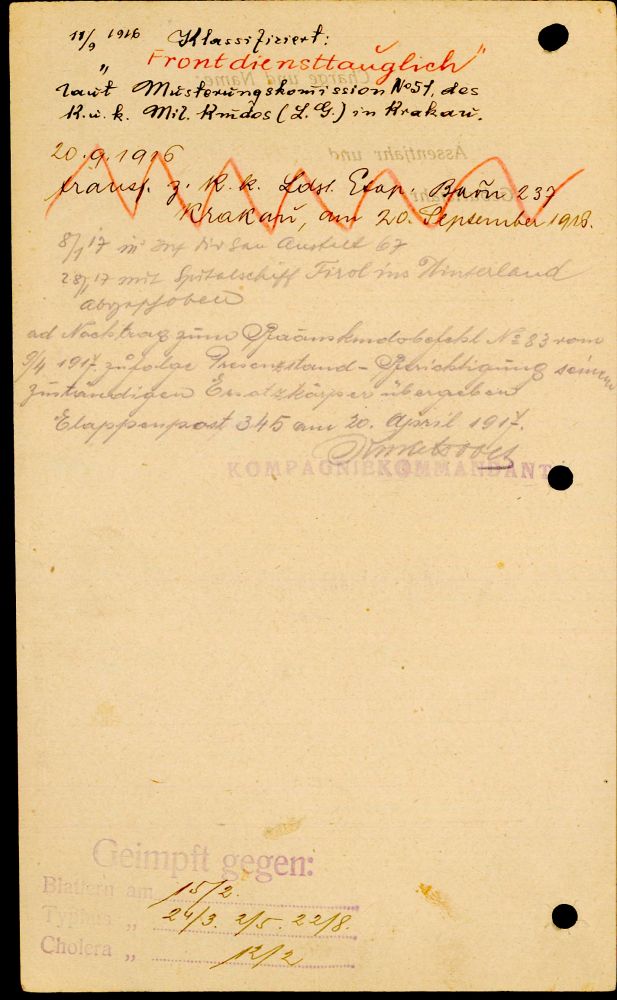 11/9 1916 Klassifiziert:
"Frontdiensttauglich"
laut Musterungskomission No 51, des
K.u.k. Mil. Kmdos (L.G.) in Krakau.
20.9.1916
transf. z. K.k. Ldst. Etap. Baon 237
Krakau, am 20. September 1916.
8/1 17 in San Anstalt 67
28/1 17 mit Spitalschiff Tirol ins Hinterland
abgeschoben
ad Nachtrag zum Baonskmdobefehl No 83 vom
9/4 1917 zufolge Presenzstand-Berichtigung seinem
zuständigen Ersatzkörper übergeben
Etappenpost 345 am 20. April 1917.
KOMPAGNIEKOMMANDANT
Geimpft gegen:
Blattern am 15/2.
Typhus „ 24/3. 2/5. 22/8.
Cholera „ 12/2